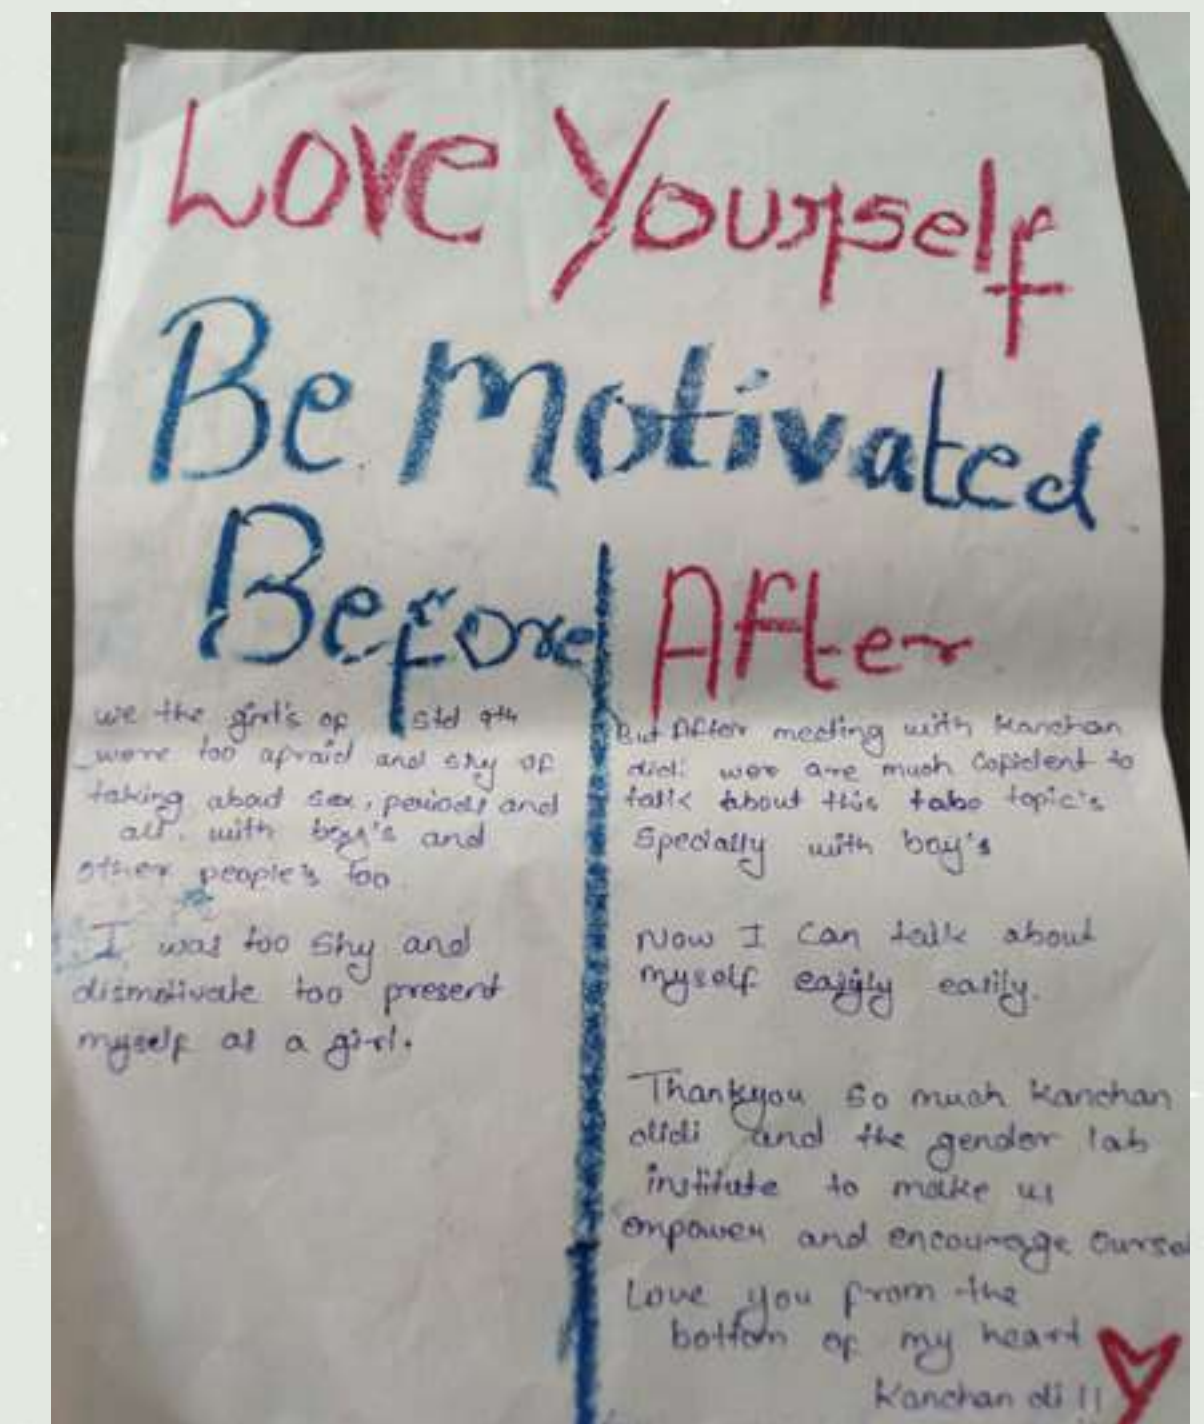 Love Yourself
Be Motivated
Before
we the girl's of std 9th
were too afraid and shy of
taking about sex, periods and
all. with boys's and
other people's too
I was too shy and
dismotivate too present
myself as a girl.
After
But After meeting with Kanchan
didi wee are much Copident to
talk about this tabo topic's
Specially with boy's
Now I Can talk about
myself easily.
Thankyou So much Kanchan
didi and the gender lab
institute to make us
empower and encourage oursel
Love you from the
bottom of my heart
Kanchan di !!